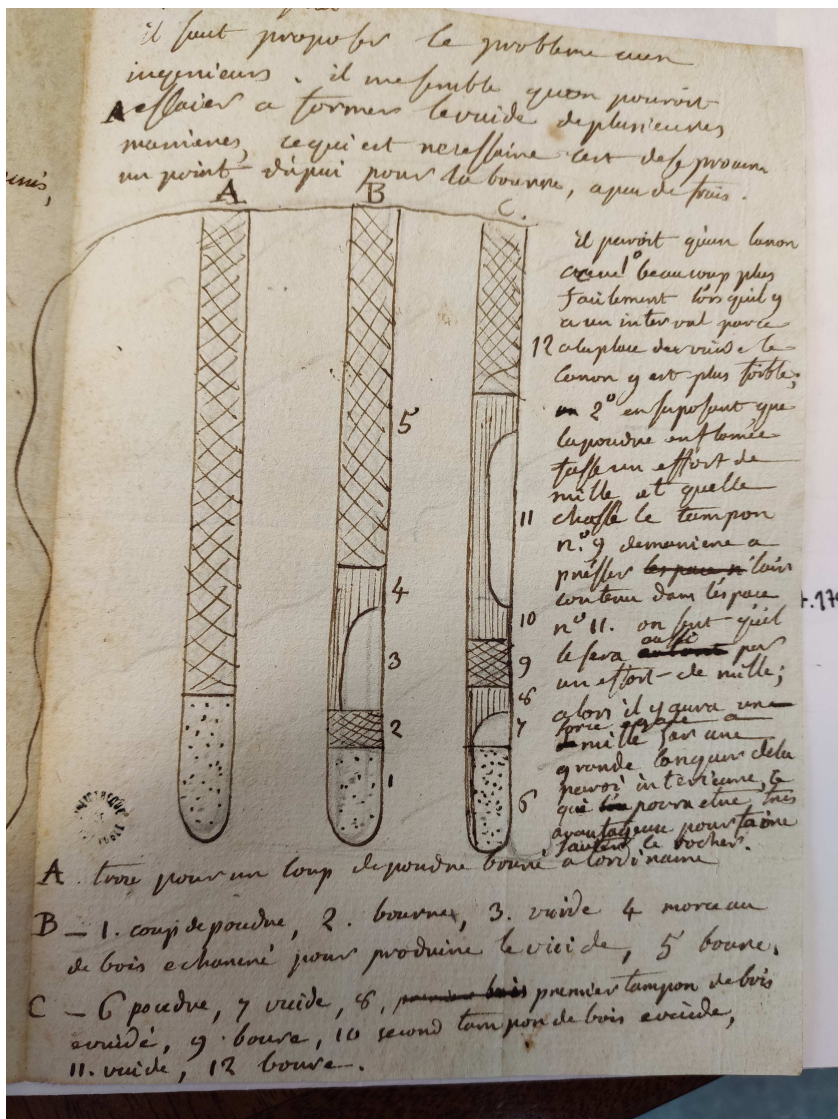 il faut proposer le probleme aux
ingenieurs. il me semble quon pouroit
essaier a former levuide de plusieures
manieres, cequi est necessaire cest dese procurer
un point dapui pour la bourre, a peu de frais.
A B C.
il paroit qu'un canon
creve 1º beaucoup plus
facilement lorsquil y
a un interval parce
12 ala place des vuide le
canon y est plus foible;
2º en suposant que
la poudre enflamée
fasse un effort de
5
mille et quelle
11 chasse le tampon
n.º 9 demaniere a
presser lair
contenu dans l'espace
nº 11. on sent qu'il
4
10
le sera aussi par
9
un effort de mille;
3
8
alors il y aura une
force egale a
7
mille sur une
2
grande longueur de la
paroi interieure, ce
1
6
qui poura etre tres
avantageux pour faire
sauter le rocher.
A trou pour un coup de poudre bourré a lordinaire
B – 1. coup de poudre, 2. bourre, 3. vuide 4 morceau
de bois echancré pour produire le vuide, 5 boure.
C – 6 poudre, 7 vuide, 8, premier tampon de bois
evuidé, 9 boure, 10 second tampon de bois evuidé,
11. vuide, 12 boure.